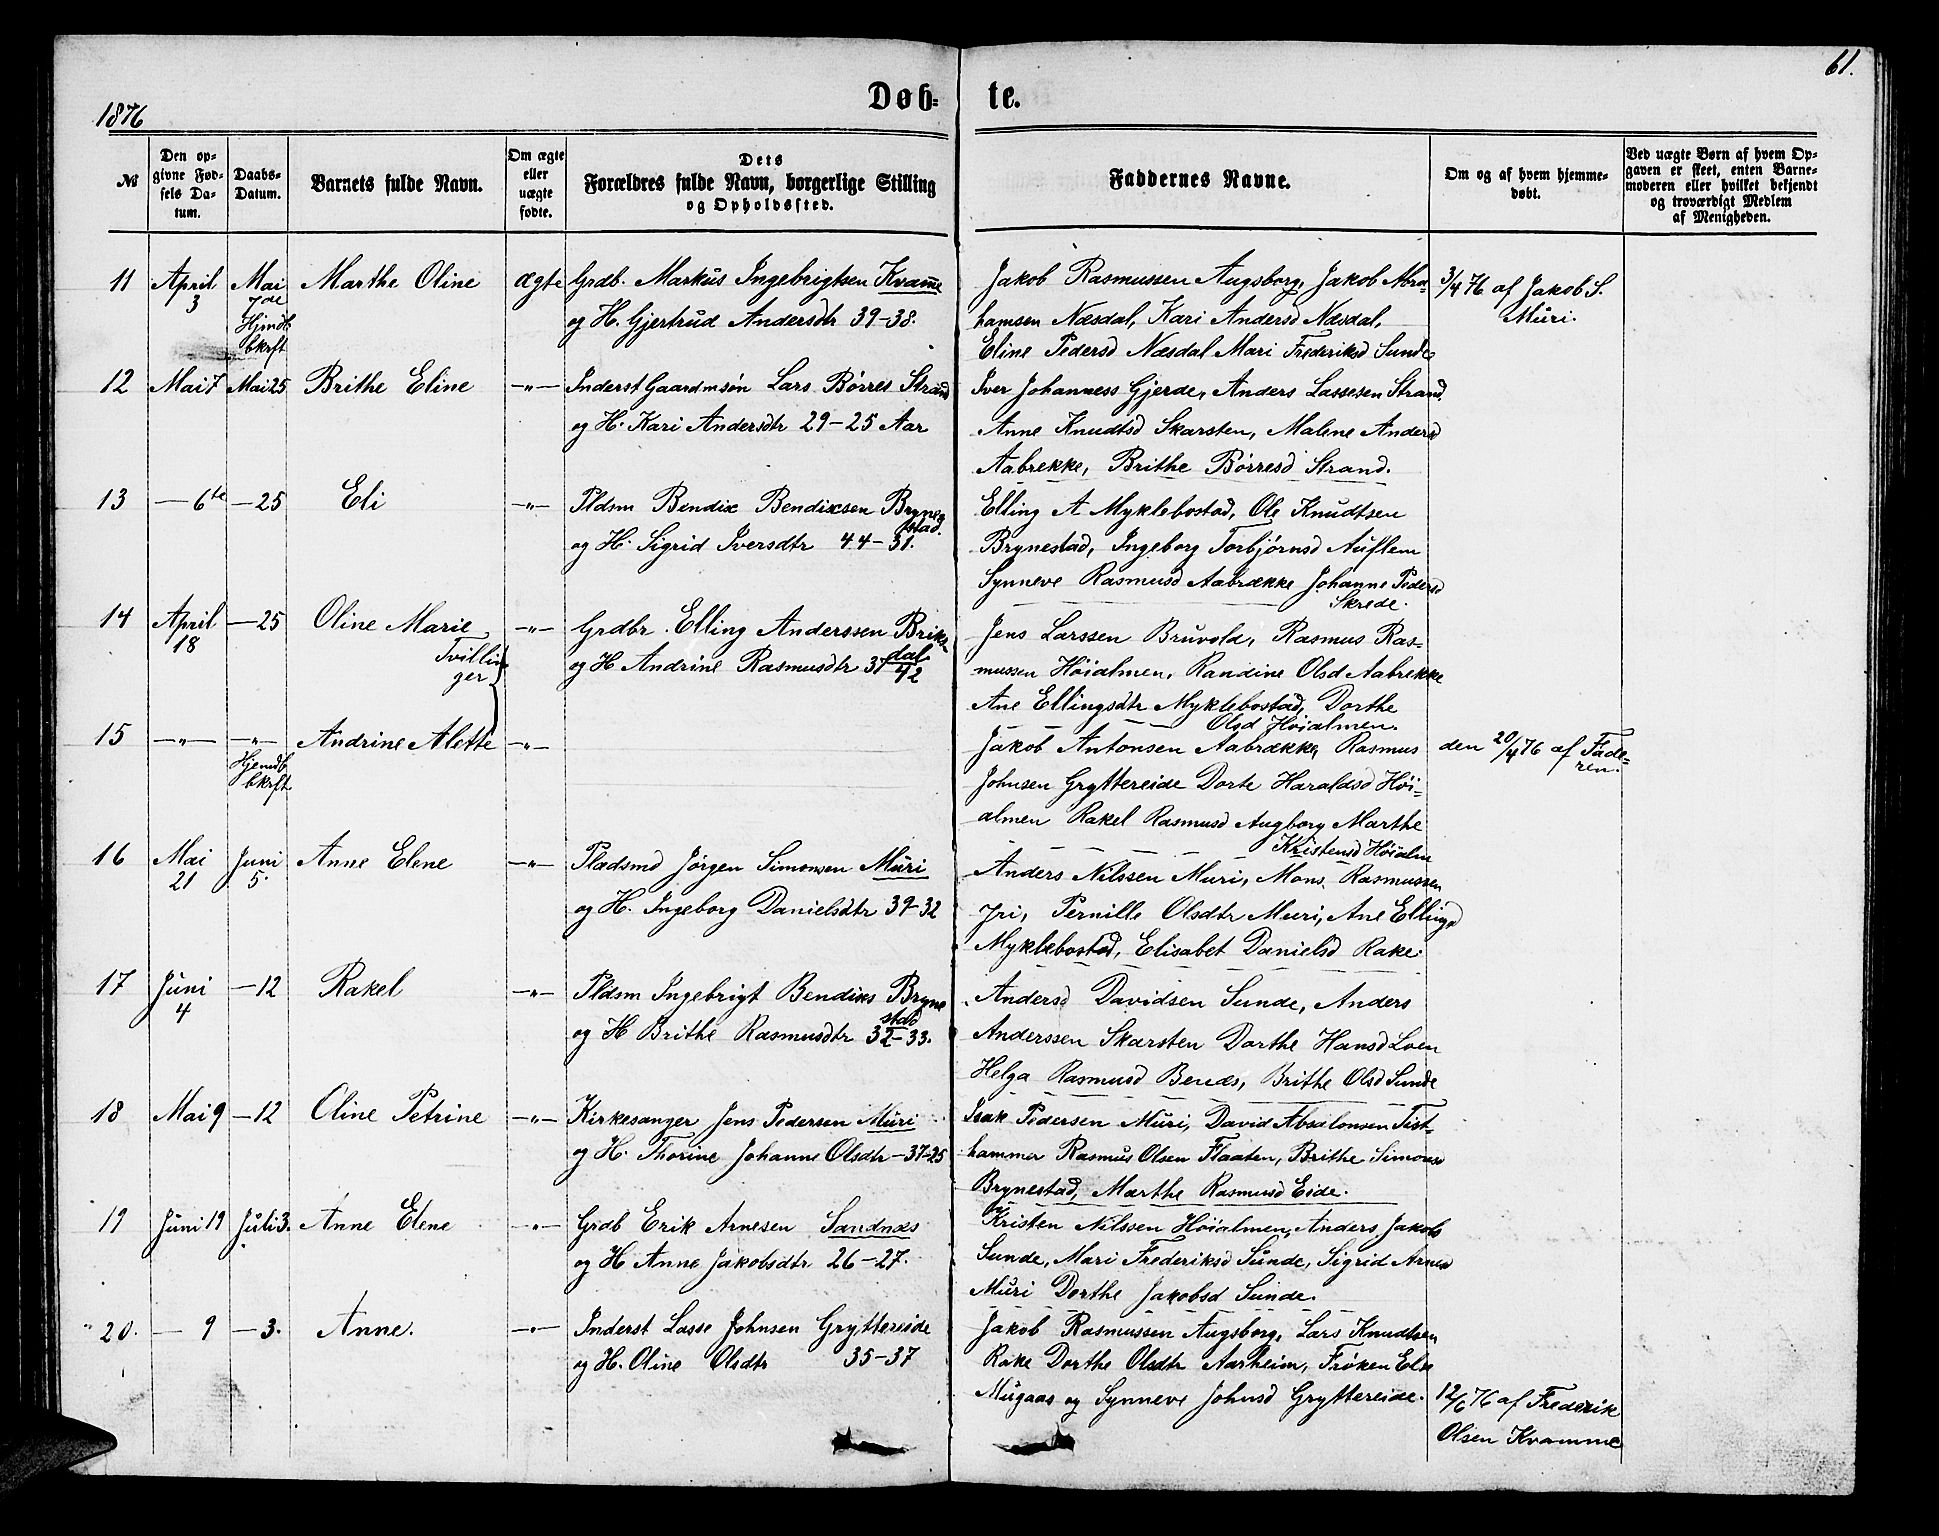 1876
Døb-
te.
61.
No
Den op-
givne Fød-
sels Da-
tum.
Daabs-
Datum.
Barnets fulde Navn.
Om ægte
eller
uægte
fødte.
Dets
Forældres fulde Navn, borgerlige Stilling
og Opholdssted.
Faddernes Navne.
Om og af hvem hjemme-
døbt.
Ved uægte Børn af hvem Op-
gaven er skeet, enten Barne-
moderen eller hvilket bekjendt
og troværdigt Medlem
af Menigheden.
11
April
3
Mai
7de
Hjmdb.
bkrft
Marthe Oline
Ægte
Grdb. Markus Ingebrigtsen Kvamme
og H. Gjertrud Andersdtr 39-38.
Jakob Rasmussen Augsborg, Jakob Abra-
hamsen Næsdal, Kari Andersd Næsdal,
Eline Pedersd Næsdal Mari Frederiksd Sunde
3/4 76 af Jakob S.
Muri.
12
Mai 7
Mai 25
Brithe Eline
—"—
Inderst Gaardmsøn Lars Børres Strand
og H. Kari Andersdtr 29-25 Aar
Iver Johanness Gjerde, Anders Lassesen Strand
Anne Knudtsd Skarsten, Malene Andersd
Aabrekke, Brithe Børresd Strand.
13
— 6te
— 25
Eli
—"—
Pldsm Bendix Bendixsen Brynes
stad.
og H. Sigrid Iversdtr 44-31.
Elling A Myklebostad, Ole Knudtsen
Brynestad, Ingeborg Torbjørnsd Auflem
Synneve Rasmusd Aabrække Johanne Pedersd
Skrede.
14
April
18
— 25
Oline Marie
Tvillin
ger
—"—
Grdbr. Elling Anderssen Briks-
dal
og H Andrine Rasmusdtr 37 42
Jens Larssen Bruvold, Rasmus Ras-
mussen Høialmen, Randine Olsd Aabrekke
Ane Ellingsdtr Myklebostad, Dorthe
Olsd Høialmen.
15
—"—
—"—
Hjemdb
bkrft
Andrine Alette
—"—
Jakob Antonsen Aabrække, Rasmus
Johnsen Gryttereide Dorte Haraldsd Høi-
almen Rakel Rasmusd Augborg Marthe
Kristensd Høialm
den 20/4 76 af Fade-
ren.
16
Mai
21
Juni
5.
Anne Elene
—"—
Pladsmd Jørgen Simonsen Muri
og H. Ingeborg Danielsdtr 39-32
Anders Nilssen Muri, Mons Rasmussen
Jri, Pernille Olsdtr Muri, Ane Ellingsd
Myklebostad, Elisabet Danielsd Rake.
17
Juni
4
— 12
Rakel
—"—
Pldsm Ingebrigt Bendixs Bryne
stad
og H Brithe Rasmusdtr 32-33.
Andersd Davidsen Sunde, Anders
Anderssen Skarsten Dorthe Hansd Loen
Helga Rasmusd Benæs, Brithe Olsd Sunde
18
Mai 9
— 12
Oline Petrine
—"—
Kirkesanger Jens Pedersen Muri
og H. Thorine Johanne Olsdtr — 37-25
Isak Pedersen Muri, David Absalonsen Tist-
hammer Rasmus Olsen Flaaten, Brithe Simonsd
Brynestad, Marthe Rasmusd Eide.
19
Juni 19
Juli 3.
Anne Elene
—"—
Grdb Erik Arnesen Sandnæs
og H Anne Jakobsdtr 26-27.
Kristen Nilssen Høialmen, Anders Jakobs
Sunde, Mari Frederiksd Sunde, Sigrid Arnesd
Muri Dorthe Jakobsd Sunde.
20.
— 9
— 3.
Anne.
—"—
Inderst Lasse Johnsen Gryttereide
og H. Oline Olsdtr 35-37
Jakob Rasmussen Augsborg, Lars Knudtsen
Rake Dorthe Olsdtr Aarheim, Frøken Else
Mugaas og Synneve Johnsd Gryttereide.
12/6 76 af Frederik
Olsen Kvamme